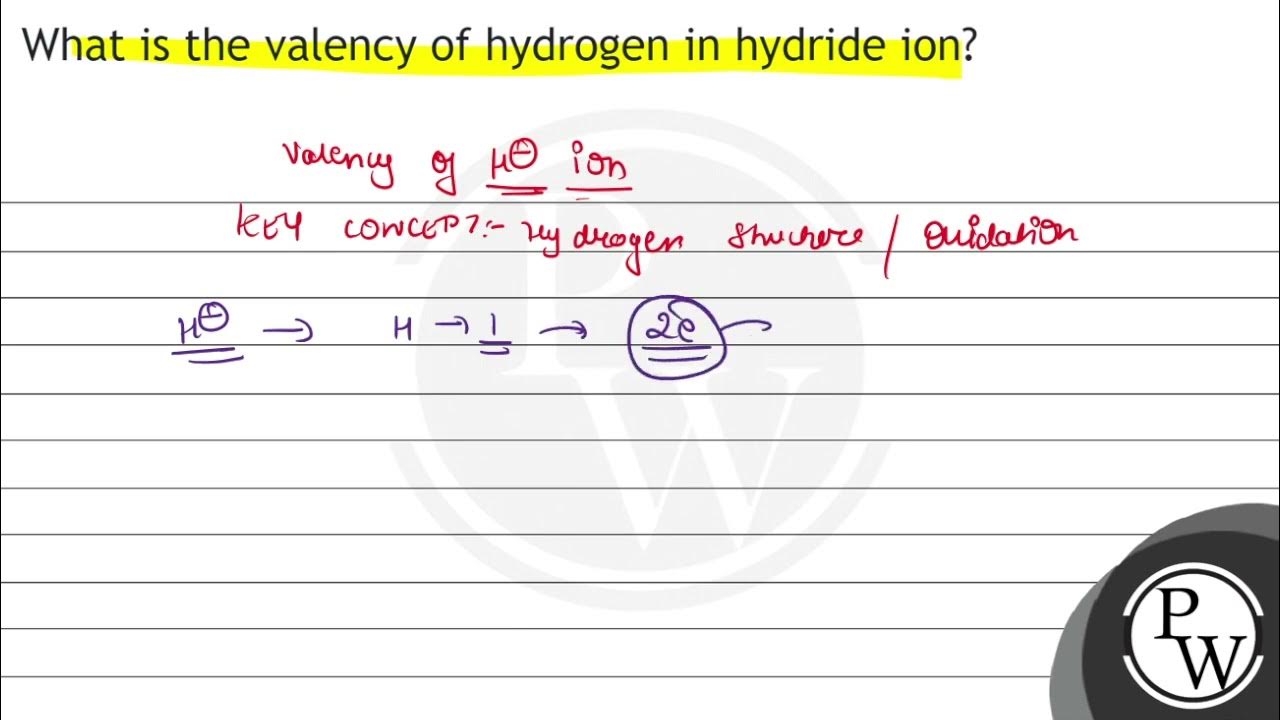 What is the valency of hydrogen in hydride ion?
Valency of H⊖ ion
KEY CONCEPT:- Hydrogen structure / Oxidation
H⊖ → H → 1 → 2e
PW
PW